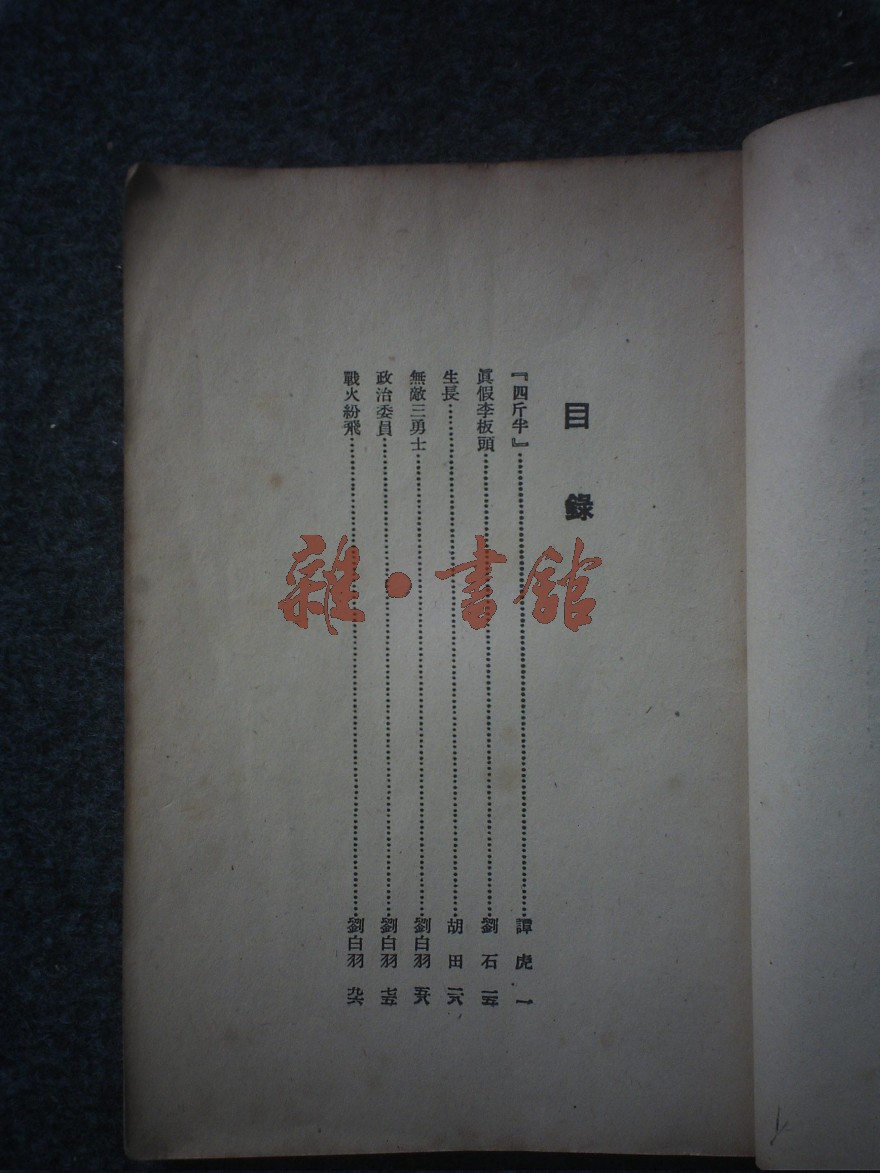 目錄
『四斤半』……譚虎 一
眞假李板頭……劉石 一五
生長……胡田 二六
無敵三勇士……劉白羽 五八
政治委員……劉白羽 七五
戰火紛飛……劉白羽 九六
雜·書館